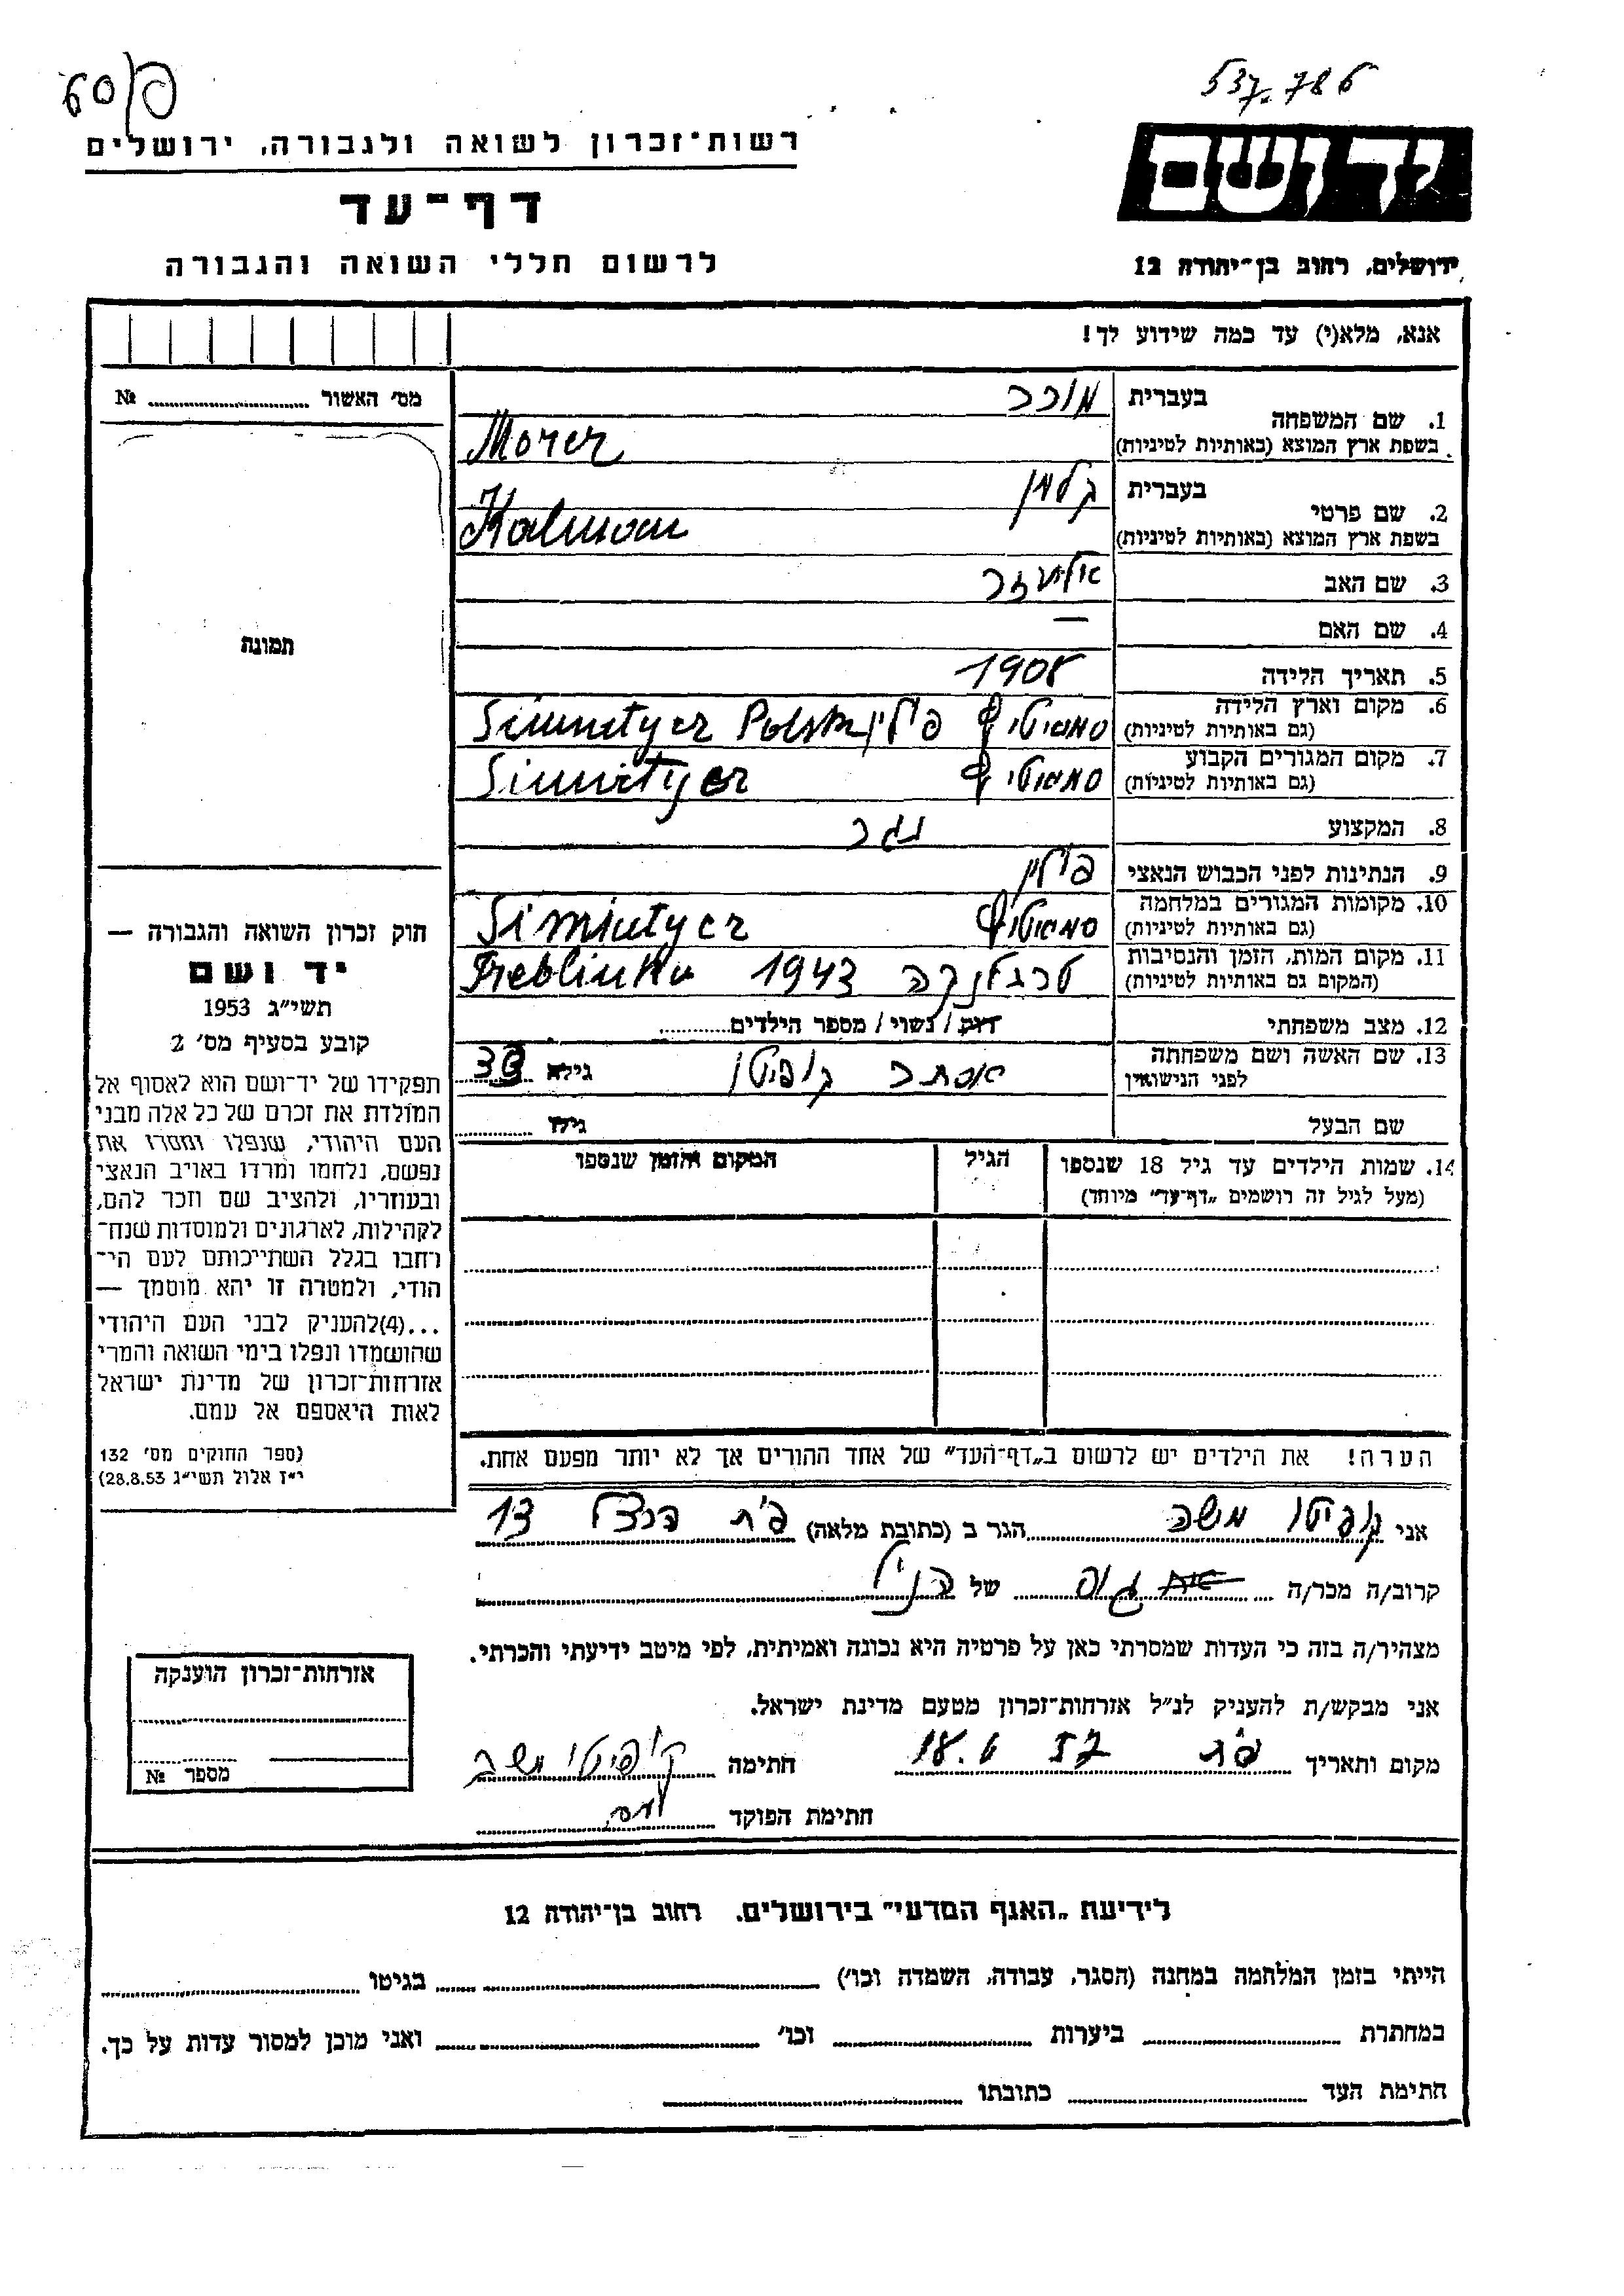 537.786
60/פ
יד ושם
ירושלים, רחוב בן־יהודה 12
רשות־זכרון לשואה ולגבורה, ירושלים
דף־עד
לרשום חללי השואה והגבורה
אנא, מלא(י) עד כמה שידוע לך!
מס׳ האשור № ..........
1. שם המשפחה בעברית מורר
בשפת ארץ המוצא (באותיות לטיניות) Morer
2. שם פרטי בעברית קלמן
בשפת ארץ המוצא (באותיות לטיניות) Kalman
3. שם האב אליעזר
4. שם האם —
5. תאריך הלידה 1908
6. מקום וארץ הלידה
(גם באותיות לטיניות) סמיאטיץ פולין Simnityer Polska
7. מקום המגורים הקבוע
(גם באותיות לטיניות) סמיאטיץ Simnityer
8. המקצוע נגר
9. הנתינות לפני הכבוש הנאצי פולין
10. מקומות המגורים במלחמה
(גם באותיות לטיניות) סמיאטיץ Simiutyer
11. מקום המות, הזמן והנסיבות
(המקום גם באותיות לטיניות) טרבלינקה 1943 Treblinka
12. מצב משפחתי רווק / נשוי / מספר הילדים..........
13. שם האשה ושם משפחתה
לפני הנישואין אסתר קופיטו גילה 33
שם הבעל גילו ..........
14. שמות הילדים עד גיל 18 שנספו
(מעל לגיל זה רושמים „דף־עד״ מיוחד)
הגיל
המקום והזמן שנספו
תמונה
חוק זכרון השואה והגבורה —
יד ושם
תשי״ג 1953
קובע בסעיף מס׳ 2
תפקידו של יד־ושם הוא לאסוף אל
המולדת את זכרם של כל אלה מבני
העם היהודי, שנפלו ומסרו את
נפשם, נלחמו ומרדו באויב הנאצי
ובעוזריו, ולהציב שם וזכר להם,
לקהילות, לארגונים ולמוסדות שנח־
רחבו בגלל השתייכותם לעם הי־
הודי, ולמטרה זו יהא מוסמך —
...(4)להעניק לבני העם היהודי
שהושמדו ונפלו בימי השואה והמרי
אזרחות־זכרון של מדינת ישראל
לאות היאספם אל עמם.
(ספר החוקים מס׳ 132
י״ז אלול תשי״ג 28.8.53)
הערה! את הילדים יש לרשום ב„דף־העד״ של אחד ההורים אך לא יותר מפעם אחת.
אני קופיטו משה הגר ב (כתובת מלאה) פ״ת הרצל 13
קרוב/ה מכר/ה גיס של הנ״ל
מצהיר/ה בזה כי העדות שמסרתי כאן על פרטיה היא נכונה ואמיתית, לפי מיטב ידיעתי והכרתי.
אני מבקש/ת להעניק לנ״ל אזרחות־זכרון מטעם מדינת ישראל.
מקום ותאריך פ״ת חתימה קופיטו משה
חתימת הפוקד
אזרחות־זכרון הוענקה
מספר №
לידיעת „האגף המדעי״ בירושלים, רחוב בן־יהודה 12
הייתי בזמן המלחמה במחנה (הסגר, עבודה, השמדה וכו׳) .......... בגיטו ..........
במחתרת .......... ביערות .......... וכו׳ .......... ואני מוכן למסור עדות על כך.
חתימת העד .......... כתובתו ..........